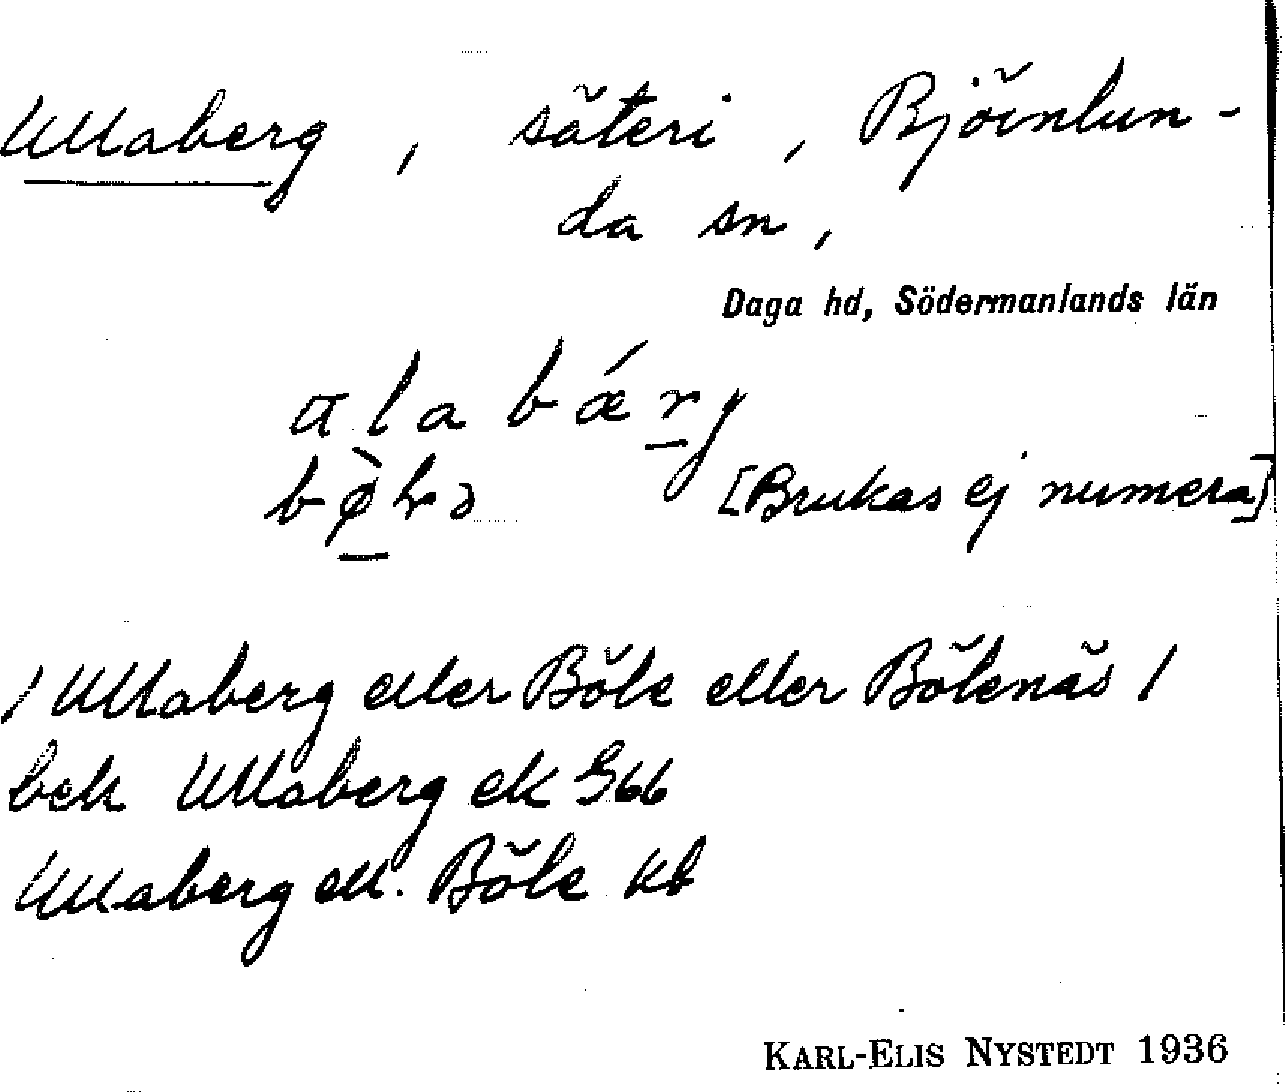 Ullaberg, säteri, Björnlun-
da sn,
Daga hd, Södermanlands län
[Brukas ej numera]
/ Ullaberg eller Böle eller Bölenäs /
bek Ullaberg ek G66
Ullaberg ell. Böle kb
KARL-ELIS NYSTEDT 1936